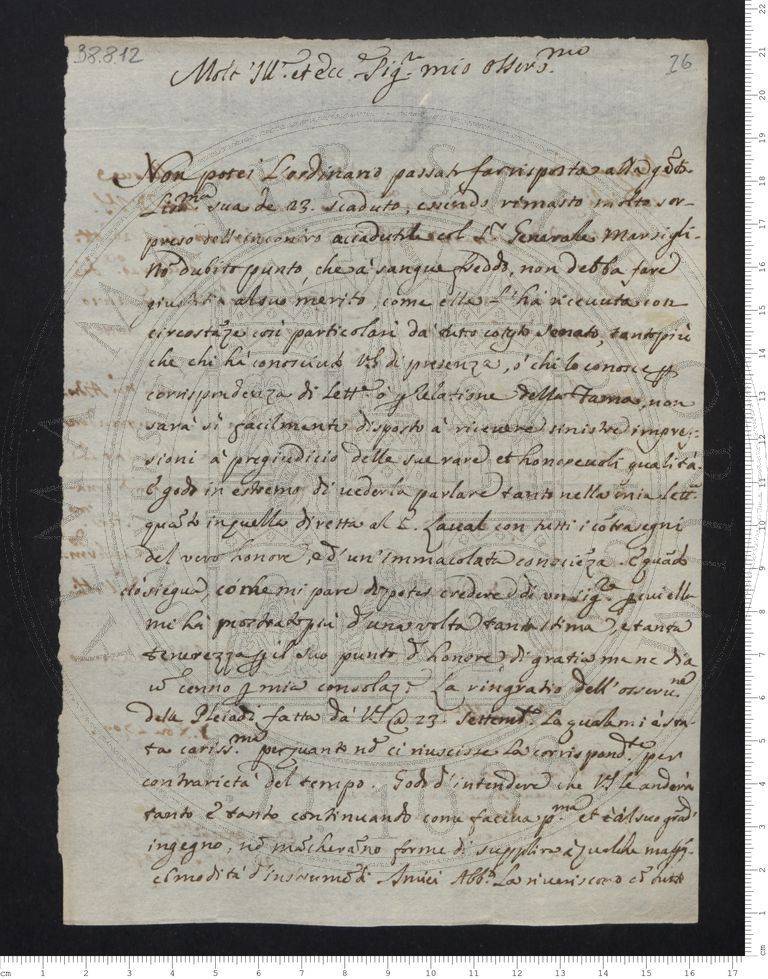 38.8.12
26
Molt' Ill.re et ecc.te Sig.r mio osserv.mo
Non potei L'ordinario passato far risposta alla
sua de 23. scaduto, essendo rimasto molto sor-
preso dell'incontro accadutole col S.r Generale Marsigli.
Nō dubito punto, che à sangue freddo, non debba fare
giustitia al suo merito, come ella l'hà ricevuta con
circostāze cosi particolari dà tutto cotesto Senato, tanto più
che chi hà conosciuto VS di presenza, ò chi lo conosce p
corrispondenza di Lett.e ò p Relatione della Fama, non
sarà si facilmente disposto à ricevere sinistre impres-
sioni à pregiudicio delle sue rare et honorevoli qualità.
E godo in estremo di vederla parlare tanto nella mia Lett.a
quāto in quella diretta al con tutti i cōtrasegni
del vero honore, e d'un'immacolata conscieza. E quādo
ciò siegua, come mi pare di poter credere di un Sig.re p cui ella
mi hà mostrato più d'una volta tanta stima, e tanta
tenerezza p il suo punto d'honore, di gratia me ne dia
ū cenno p mia consolaz.e La ringratio dell'osservne
delle Pleiadi fatta dà VS @ 23. Settemb.e La quale mi è sta-
ta cariss.ma per quanto nō ci riuscisse La corrispond.te per
contrarietà del tempo. Godo d'intendere che VS le anderà
tanto e tanto continuando come faceva p.ma et è al suo grād'
ingegno, nō mācherāno forme di supplire à qualche magg.r
cōmodità d'instrumēti. Amici Abb.i La riveriscono cō tutto